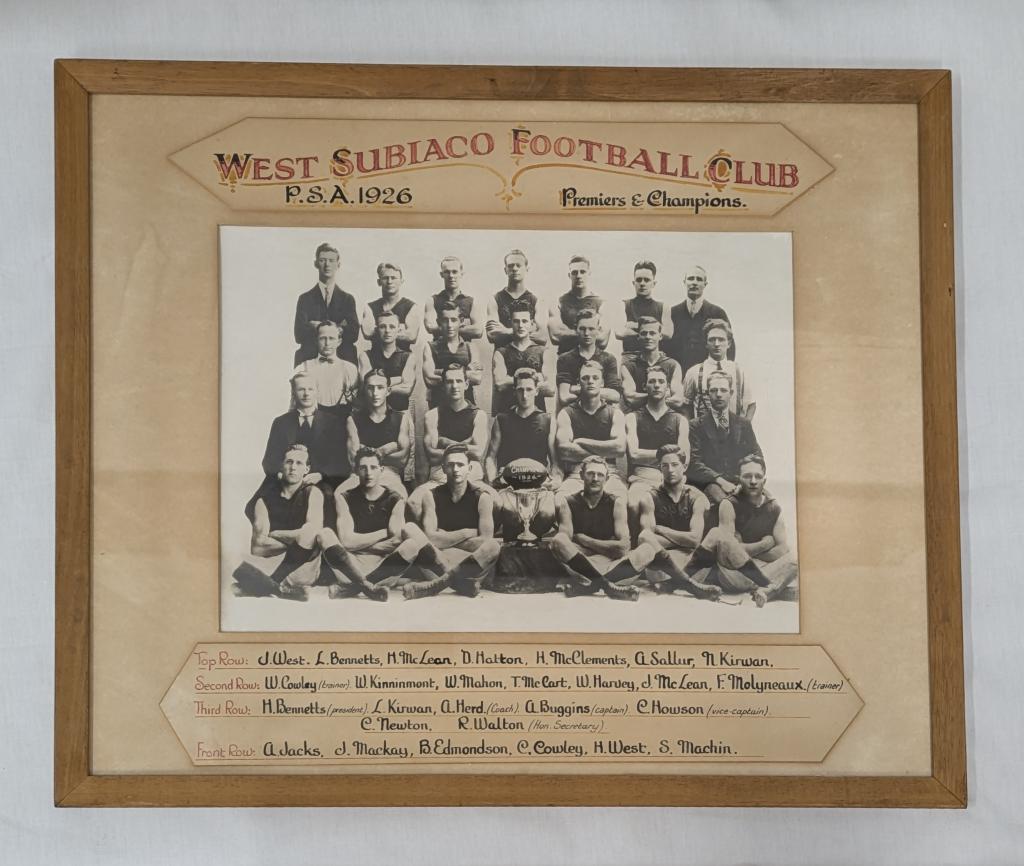 WEST SUBIACO FOOTBALL CLUB
P.S.A. 1926 Premiers & Champions.
CHAMPIONS
1926
Top Row: J. West. L. Bennetts, H. McLean, D. Hatton, H. McClements, A. Sallur, N. Kirwan,
Second Row: W. Cowley (trainer). W. Kinninmont, W. Mahon, T. McCart, W. Harvey, J. McLean, F. Molyneaux. (trainer)
Third Row: H. Bennetts (president). L. Kirwan, A. Herd. (Coach). A. Buggins (captain). C. Howson (vice-captain).
C. Newton, R. Walton (Hon. Secretary)
Front Row: A. Jacks, J. Mackay, B. Edmondson, C. Cowley, H. West, S. Machin.